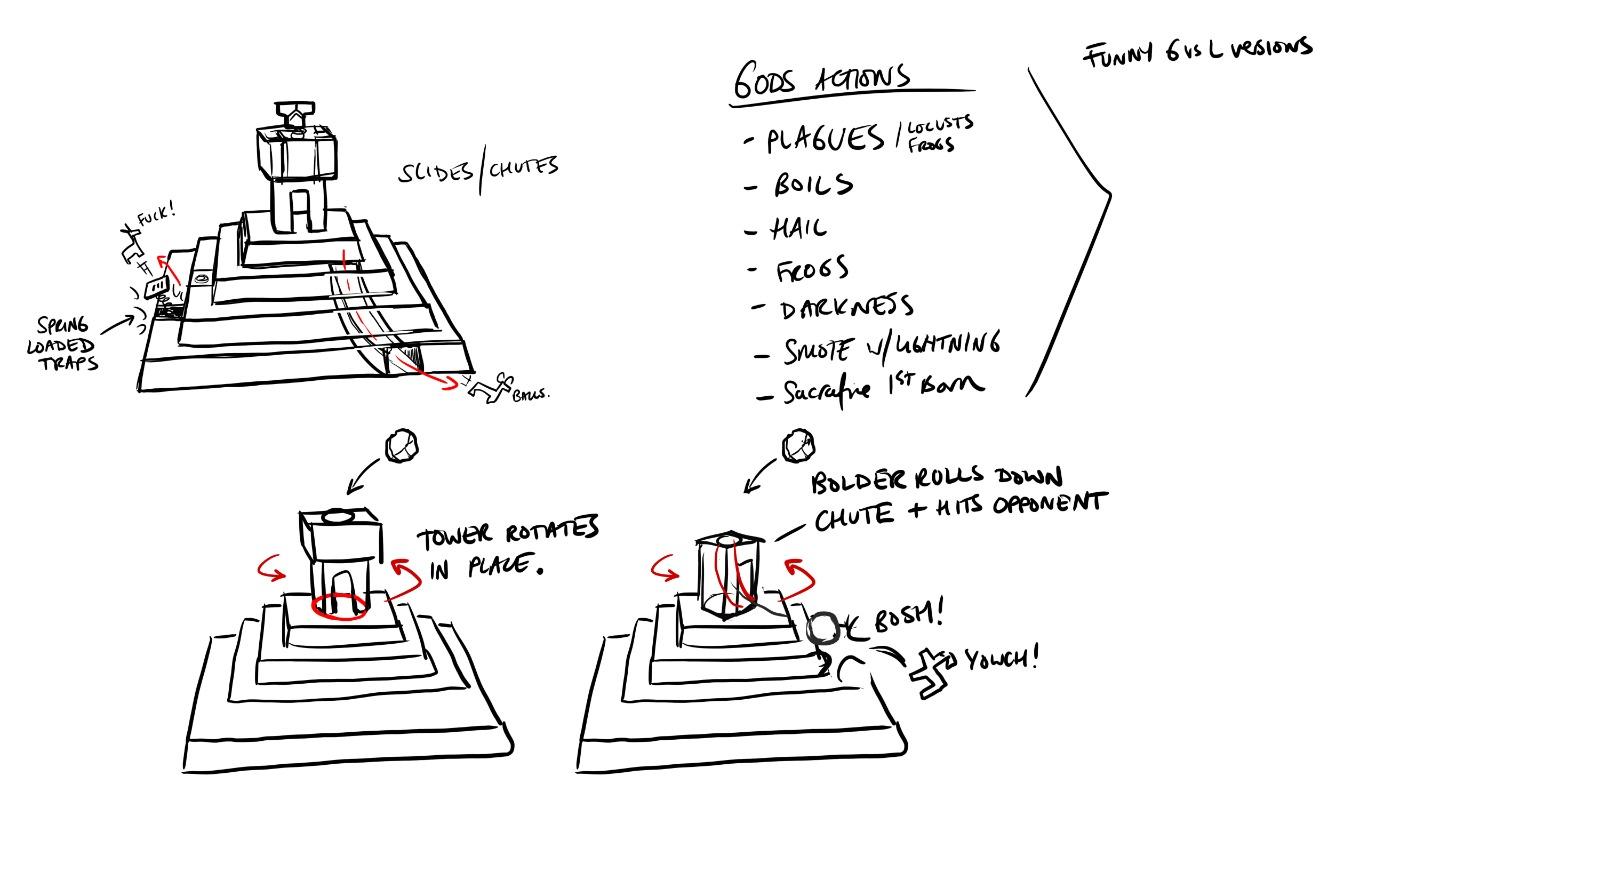 FUNNY G vs L VERSIONS
GODS ACTIONS
- PLAGUES / LOCUSTS
FROGS
- BOILS
- HAIL
- FROGS
- DARKNESS
- SMOTE W/ LIGHTNING
- Sacrafice 1ST Born
SLIDES/CHUTES
FUCK!
SPRING
LOADED
TRAPS
BALLS.
TOWER ROTATES
IN PLACE.
BOLDER ROLLS DOWN
CHUTE + HITS OPPONENT
BOSH!
YOWCH!